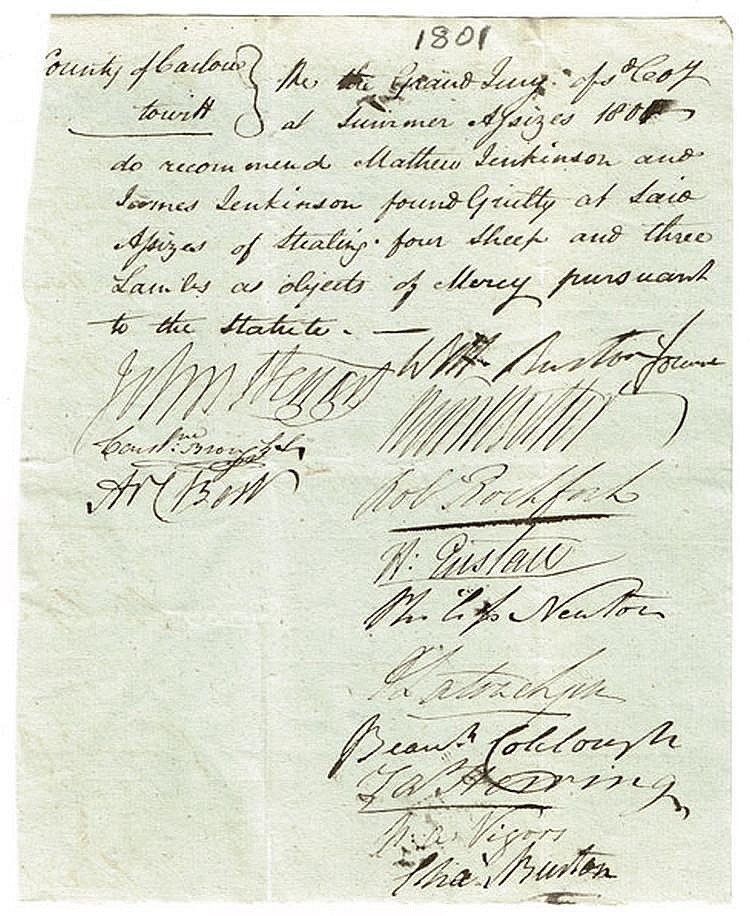 1801
County of Carlow
to witt
We the Grand Jury of sd Coy
at Summer Assizes 1801
do recommend Mathew Jenkinson and
James Jenkinson found Guilty at Said
Assizes of Stealing four Sheep and three
Lambs as objects of Mercy pursuant
to the Statute. —
Wm Burton
John
Robt Rochfort
H: Eustace
Philip Newton
Latouche
Beauch Colclough
Herring
Vigors
Chas Burton